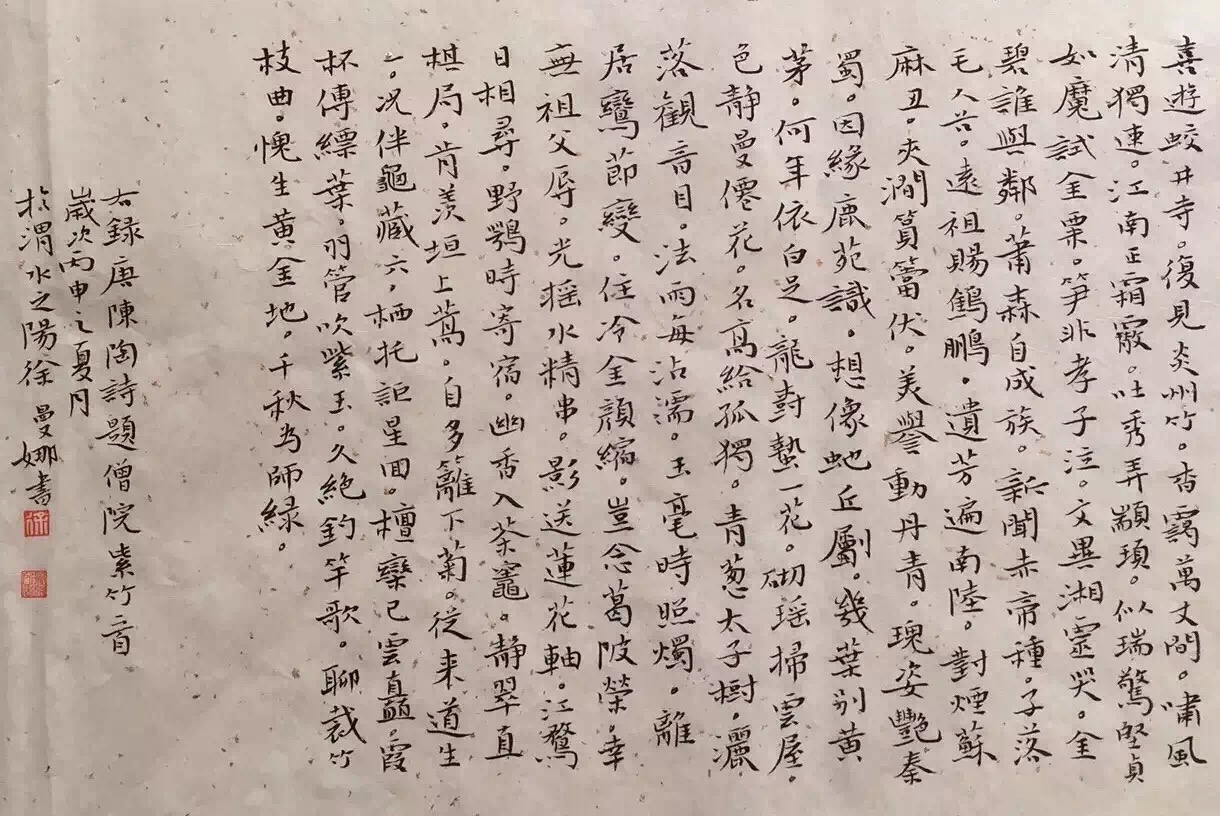 喜遊蛟井寺。復見炎州竹。杳靄萬丈間。嘯風
清獨速。江南正霜霰。吐秀弄顓頊。似瑞驚堅貞
如魔試金粟。筍非孝子泣。文異湘靈哭。金
碧誰與鄰。蕭森自成族。新聞赤帝種。子落
毛人谷。遠祖賜鶴鵬。遺芳遍南陸。對煙蘇
麻丑。夾澗篔簹伏。美譽動丹青。瑰姿艷秦
蜀。因緣鹿苑識。想像虵丘劚。幾葉别黄
茅。何年依白足。龍對蟄一花。砌瑶掃雲屋。
色静曼僊花。名高給孤獨。青葱太子樹。灑
落觀音目。法雨每沾濡。玉毫時照燭。離
居鸞節變。住冷金顔縮。豈念葛陂榮。幸
無祖父辱。光摇水精串。影送蓮花軸。江鶩
日相尋。野鶚時寄宿。幽香入茶竈。静翠直
棋局。肯羡垣上蒿。自多籬下菊。從来道生
一。况伴龜藏六。栖托詎星回。檀欒已雲矗。霞
杯傳縹葉。羽管吹紫玉。久絶釣竿歌。聊裁竹
枝曲。愧生黄金地。千秋为師緑。
右録唐陳陶詩題僧院紫竹一首
嵗次丙申之夏月
於渭水之陽徐曼娜書